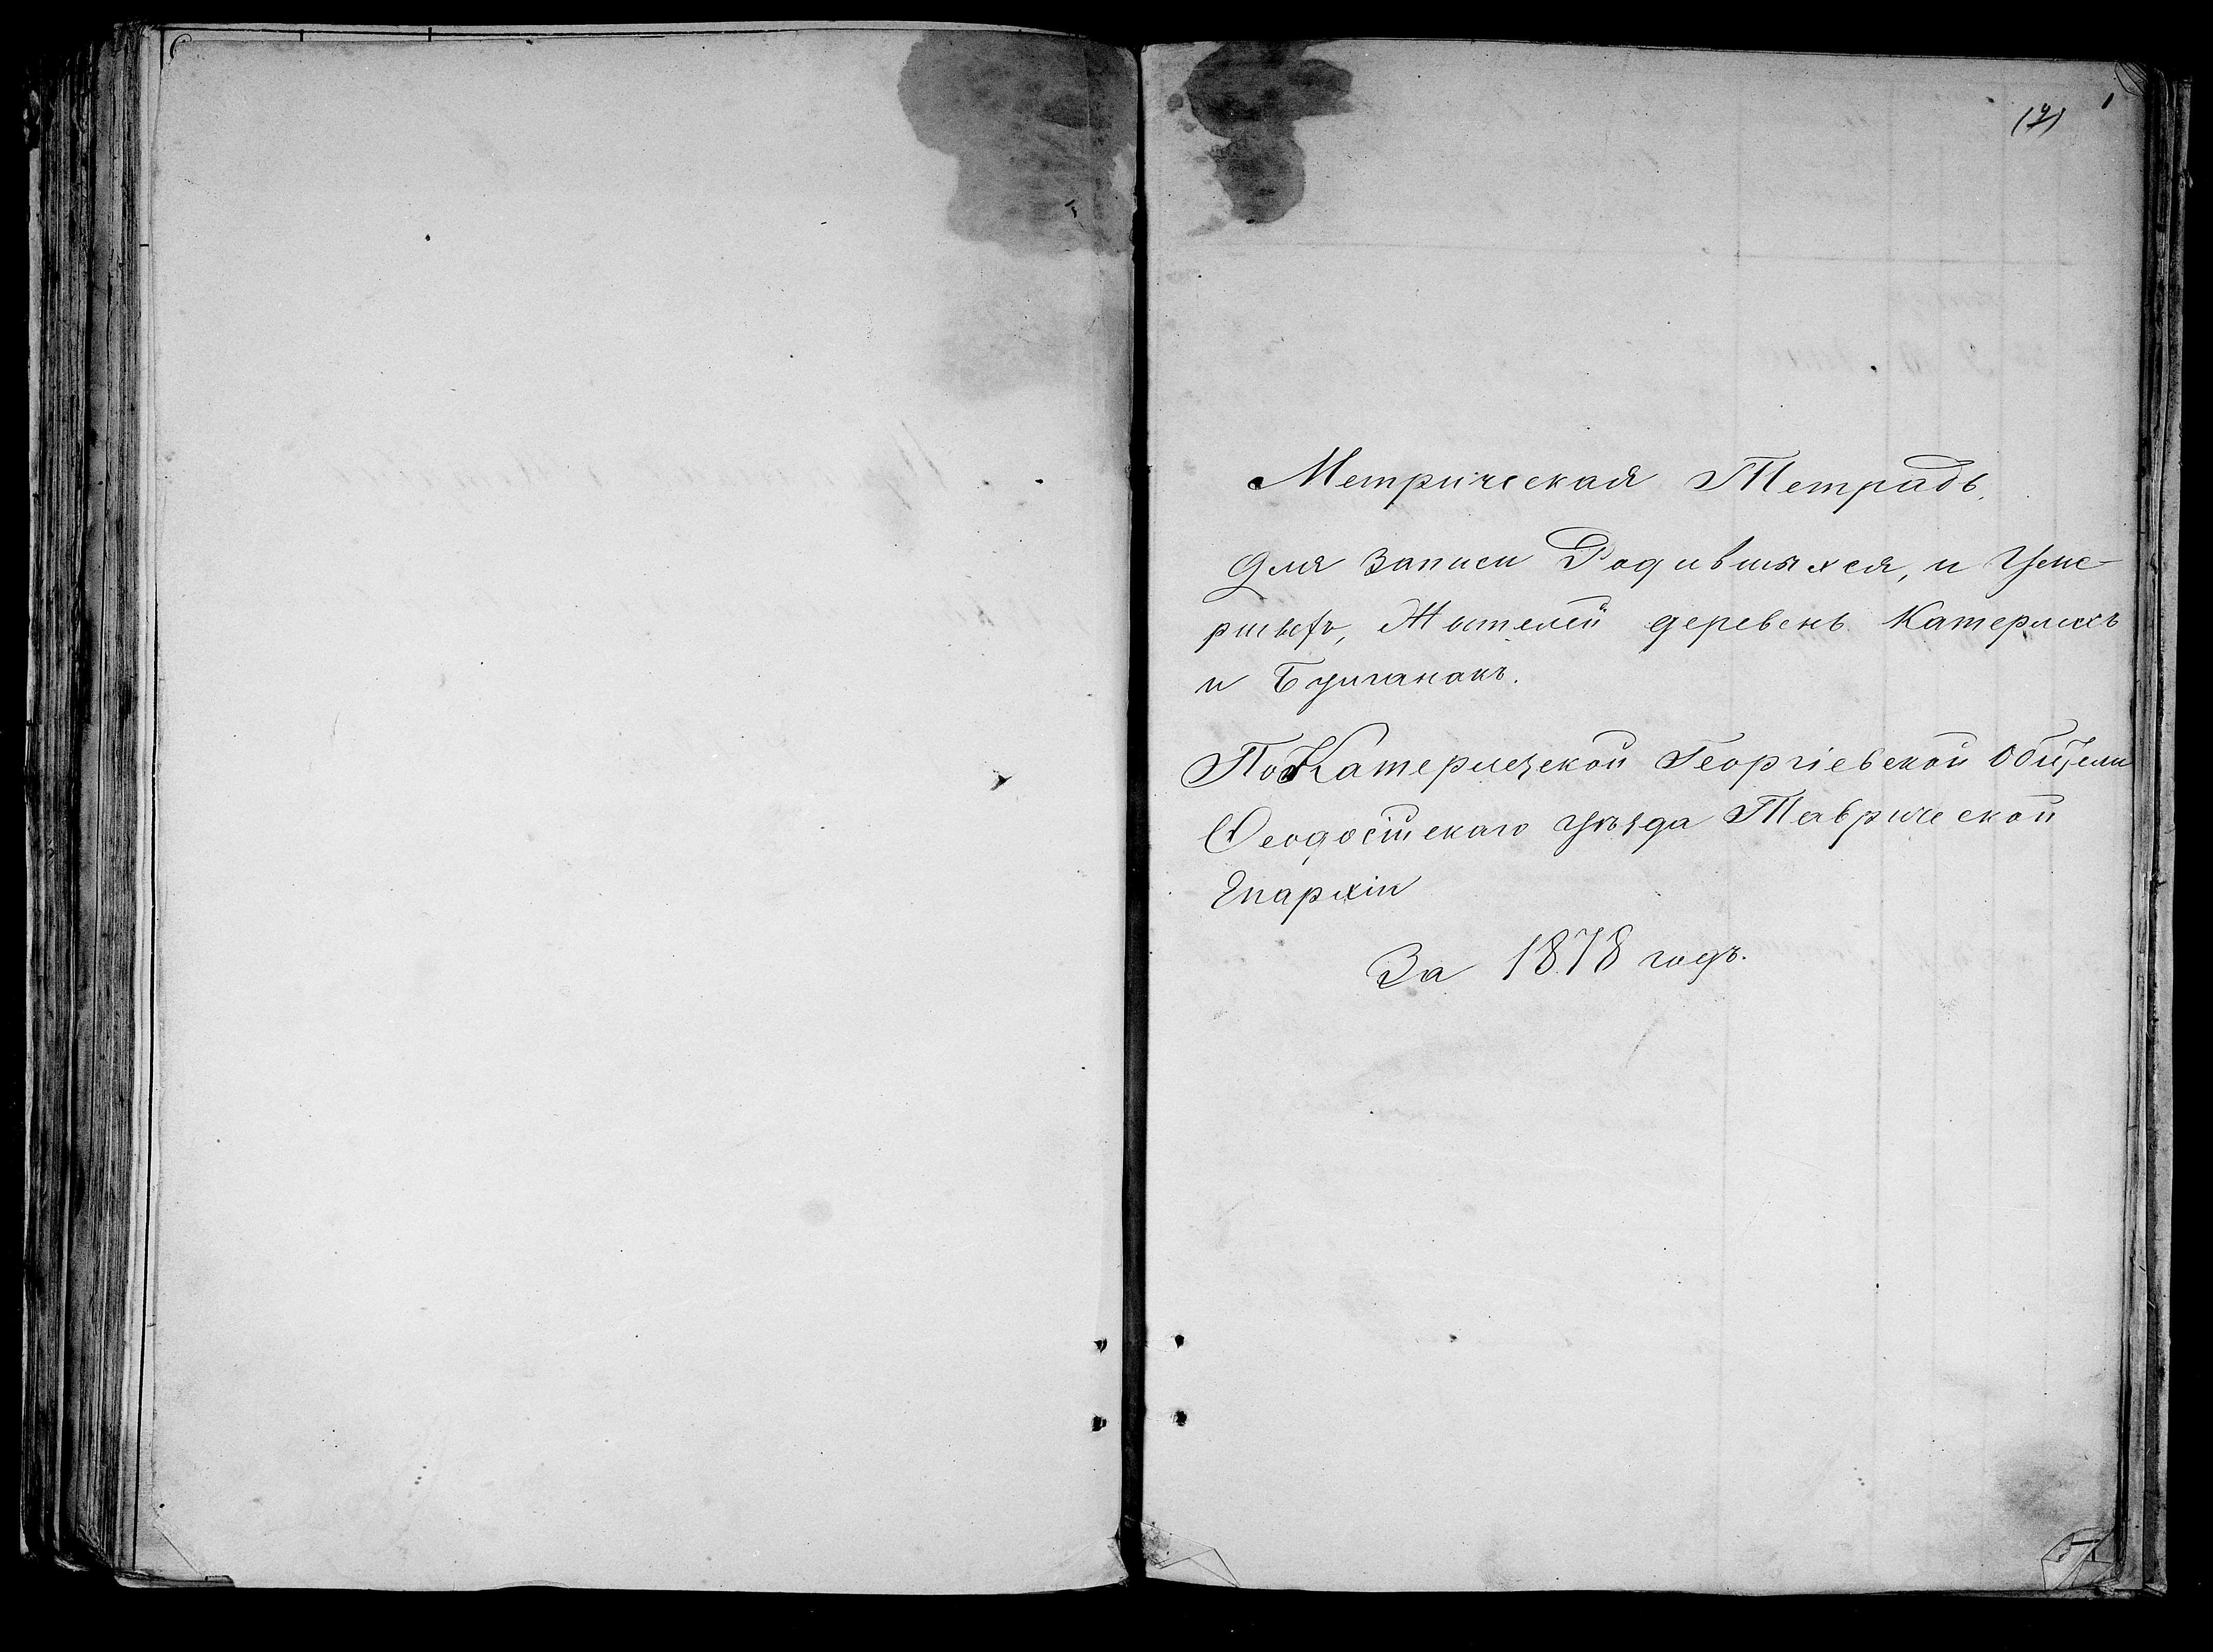 1
Метрическая Тетрадь.
Для Записи Родившихся, и Уме-
ршихъ, Жителей деревень Катерлесъ
и Булганакъ.
По Катерлезской Георгіевской Обители
Ѳеодосійскаго уѣзда Таврической
Епархіи
За 1878 годъ.